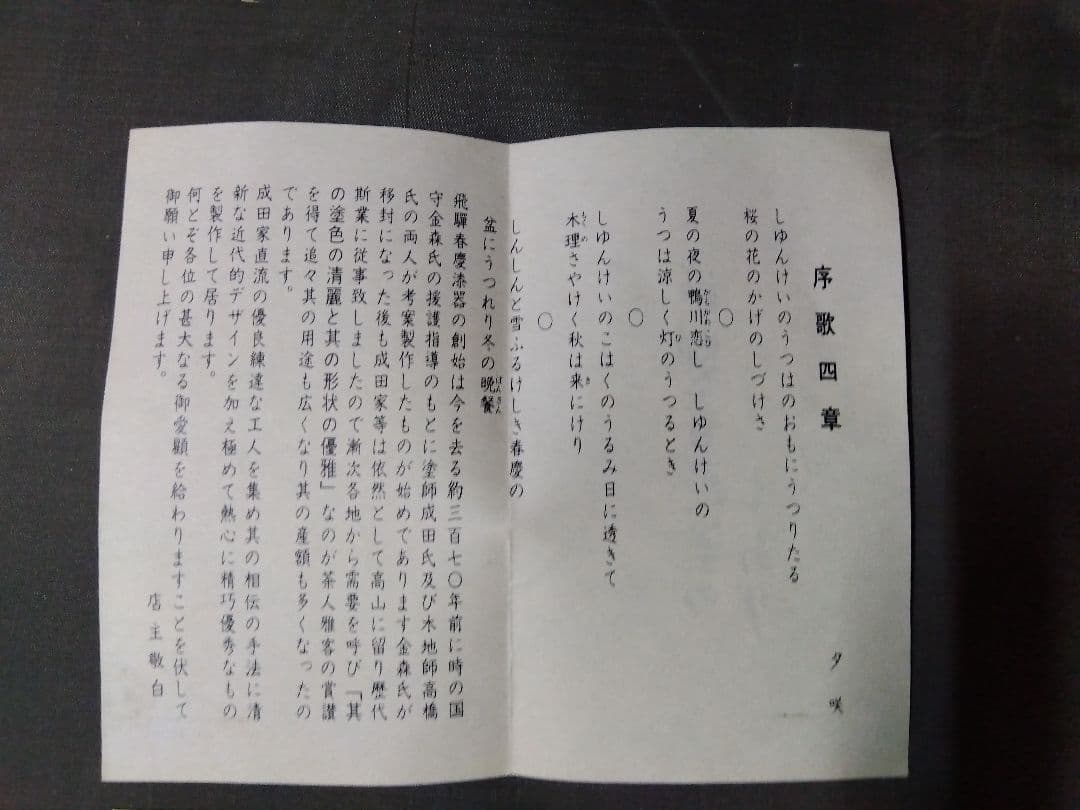 序歌四章
夕咲
しゆんけいのうつはのおもにうつりたる
桜の花のかげのしづけさ
〇
夏の夜の鴨川恋し しゆんけいの
うつは涼しく灯のうつるとき
〇
しゆんけいのこはくのうるみ日に透きて
木理さやけく秋は来にけり
〇
しんしんと雪ふるけしき春慶の
盆にうつれり冬の晩餐
飛騨春慶漆器の創始は今を去る約三百七〇年前に時の国
守金森氏の援護指導のもとに塗師成田氏及び木地師高橋
氏の両人が考案製作したものが始めであります金森氏が
移封になった後も成田家等は依然として高山に留り歴代
斯業に従事致しましたので漸次各地から需要を呼び「其
の塗色の清麗と其の形状の優雅」なのが茶人雅客の賞讃
を得て追々其の用途も広くなり其の産額も多くなったの
であります。
成田家直流の優良練達な工人を集め其の相伝の手法に清
新な近代的デザインを加え極めて熱心に精巧優秀なもの
を製作して居ります。
何とぞ各位の甚大なる御愛顧を給わりますことを伏して
御願い申し上げます。
店主敬白